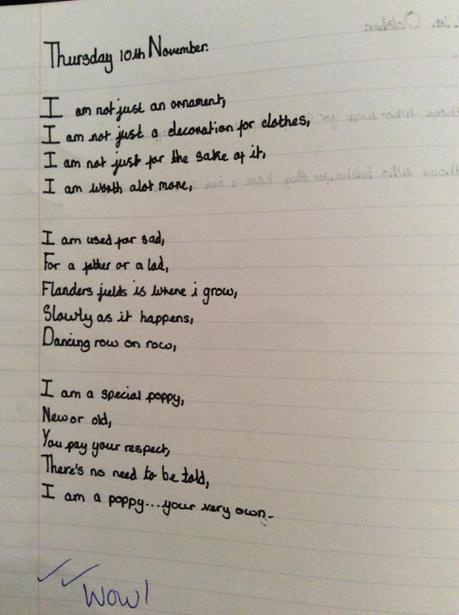 Thursday 10th November.
I am not just an ornament,
I am not just a decoration for clothes,
I am not just for the sake of it,
I am worth alot more,
I am used for sad,
For a father or a lad,
Flanders fields is where i grow,
Slowly as it happens,
Dancing row on row,
I am a special poppy,
New or old,
You pay your respect,
There's no need to be told,
I am a poppy...your very own.
WOW!